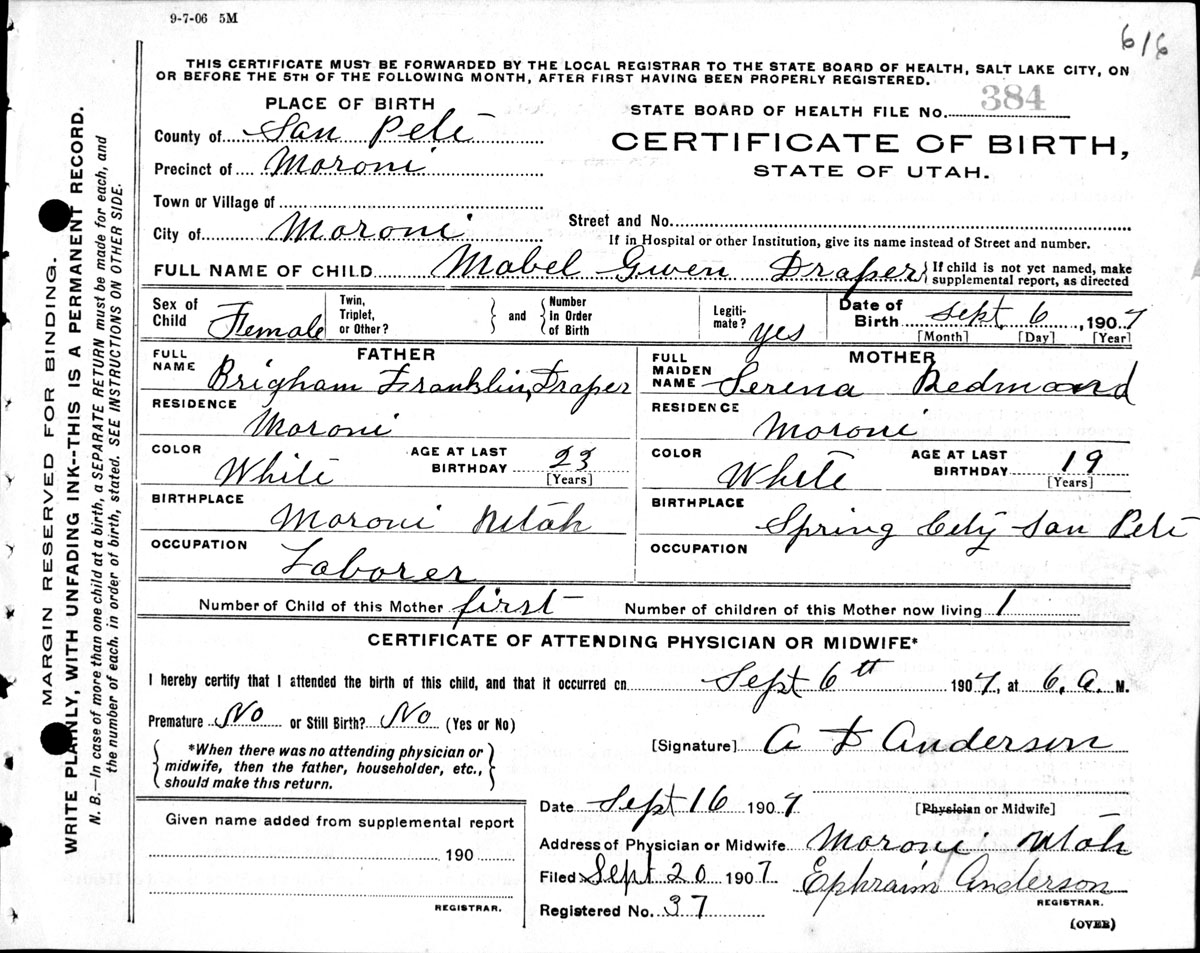 9-7-06 5M
616
THIS CERTIFICATE MUST BE FORWARDED BY THE LOCAL REGISTRAR TO THE STATE BOARD OF HEALTH, SALT LAKE CITY, ON
OR BEFORE THE 5TH OF THE FOLLOWING MONTH, AFTER FIRST HAVING BEEN PROPERLY REGISTERED.
PLACE OF BIRTH
County of San Pete
Precinct of Moroni
Town or Village of
City of Moroni
STATE BOARD OF HEALTH FILE No. 384
CERTIFICATE OF BIRTH,
STATE OF UTAH.
Street and No.
If in Hospital or other Institution, give its name instead of Street and number.
FULL NAME OF CHILD Mabel Gwen Draper { If child is not yet named, make
supplemental report, as directed
Sex of Child Female
Twin, Triplet, or Other? } and { Number In Order of Birth
Legiti-mate? yes
Date of Birth Sept 6, 1907
[Month] [Day] [Year]
FATHER
FULL NAME Brigham Franklin, Draper
RESIDENCE Moroni
COLOR White AGE AT LAST BIRTHDAY 23 [Years]
BIRTHPLACE Moroni Utah
OCCUPATION Laborer
MOTHER
FULL MAIDEN NAME Serena Redmond
RESIDENCE Moroni
COLOR White AGE AT LAST BIRTHDAY 19 [Years]
BIRTHPLACE Spring City San Pete
OCCUPATION
Number of Child of this Mother first Number of children of this Mother now living 1
CERTIFICATE OF ATTENDING PHYSICIAN OR MIDWIFE*
I hereby certify that I attended the birth of this child, and that it occurred on Sept 6th 1907, at 6. a. M.
Premature No or Still Birth? No (Yes or No)
{ *When there was no attending physician or
midwife, then the father, householder, etc.,
should make this return. }
[Signature] A D Anderson
[Physician or Midwife]
Given name added from supplemental report
190
REGISTRAR.
Date Sept 16 1907
Address of Physician or Midwife Moroni Utah
Filed Sept 20 1907 Ephraim Anderson
REGISTRAR.
Registered No. 37
(OVER)
MARGIN RESERVED FOR BINDING.
WRITE PLAINLY, WITH UNFADING INK--THIS IS A PERMANENT RECORD.
N. B.—In case of more than one child at birth, a SEPARATE RETURN must be made for each, and
the number of each, in order of birth, stated. SEE INSTRUCTIONS ON OTHER SIDE.